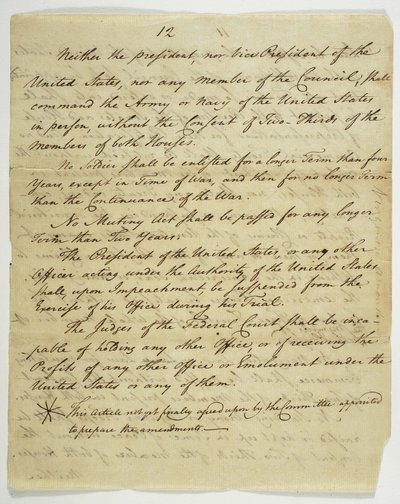 12
Neither the president, nor Vice President of the
United States, nor any member of the Council, shall
command the Army or Navy of the United States
in person, without the Consent of Two-Thirds of the
members of both Houses.
No Soldier shall be enlisted for a longer Term than four
Years, except in Time of War, and then for no longer Term
than the Continuance of the War.
No Mutiny Act shall be passed for any longer
Term than Two Years.
The President of the United States, or any other
Officer acting under the Authority of the United States
shall, upon Impeachment, be suspended from the
Exercise of his Office during his Trial.
The Judges of the Federal Court shall be inca-
pable of holding any other Office, or of receiving the
Profits of any other Office or Emolument under the
United States or any of them.
* This Article not yet finally agreed upon by the Committee appointed
to prepare the amendments.